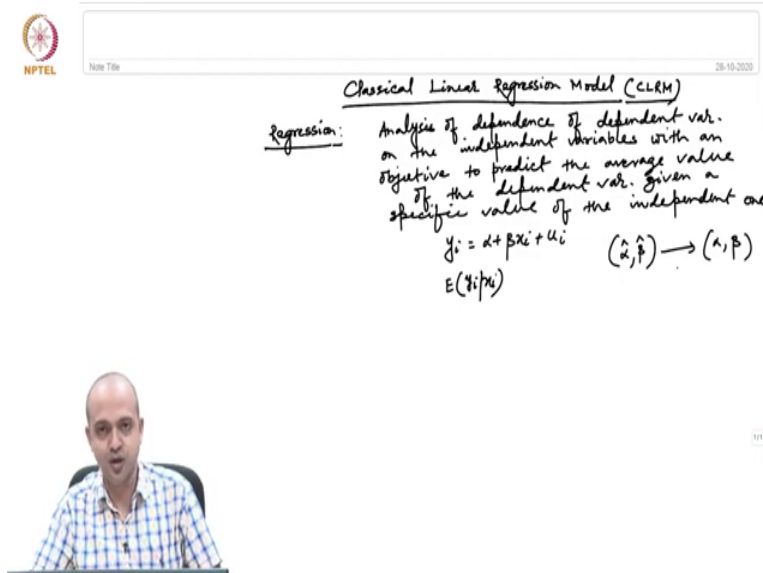 NPTEL
Note Title
28-10-2020
Classical Linear Regression Model (CLRM)
Regression: Analysis of dependence of dependent var.
on the independent variables with an
objetive to predict the average value
of the dependent var. given a
specific value of the independent one
yi = α + βxi + ui
(α̂, β̂) → (α, β)
E(yi|xi)
1/1